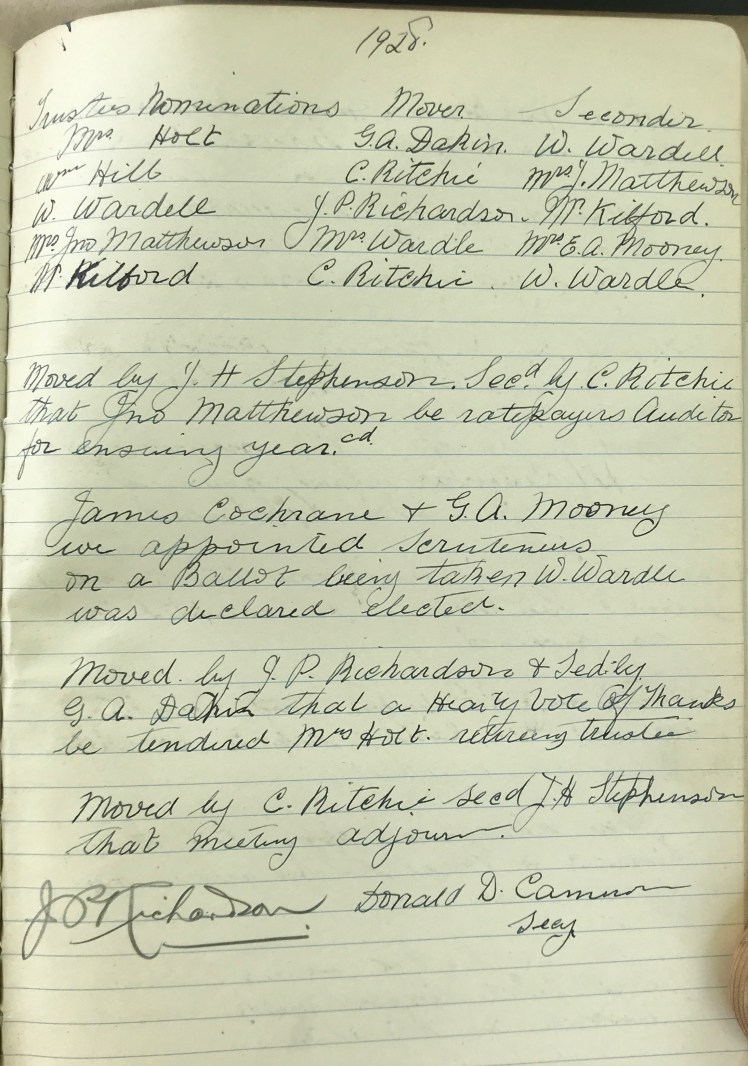 1928.
Trustees Nominations Mover Seconder.
Mrs. Holt G.A. Dakin. W. Wardell.
Wm Hill C. Ritchie Mrs. J. Matthewson
W. Wardell J.P. Richardson. W. Kilford.
Mrs. Jno Matthewson Mrs. Wardle Mrs. E.A. Mooney.
W. Kilford C. Ritchie. W. Wardle.
Moved by J. H Stephenson. Secd. by C. Ritchie
that Jno Matthewson be ratepayers Auditor
for ensuing year. cd.
James Cochrane & G.A. Mooney
we appointed scruteneers
on a Ballot being taken W. Wardle
was declared elected.
Moved. by J. P. Richardson & by
G. A. Dakin that a Hearty Vote Of Thanks
be tendered Mrs Holt. retireing trustee
Moved by C. Ritchie secd J.H Stephenson
that meeting adjourn.
J P Richardson Donald D. Cameron
Secy